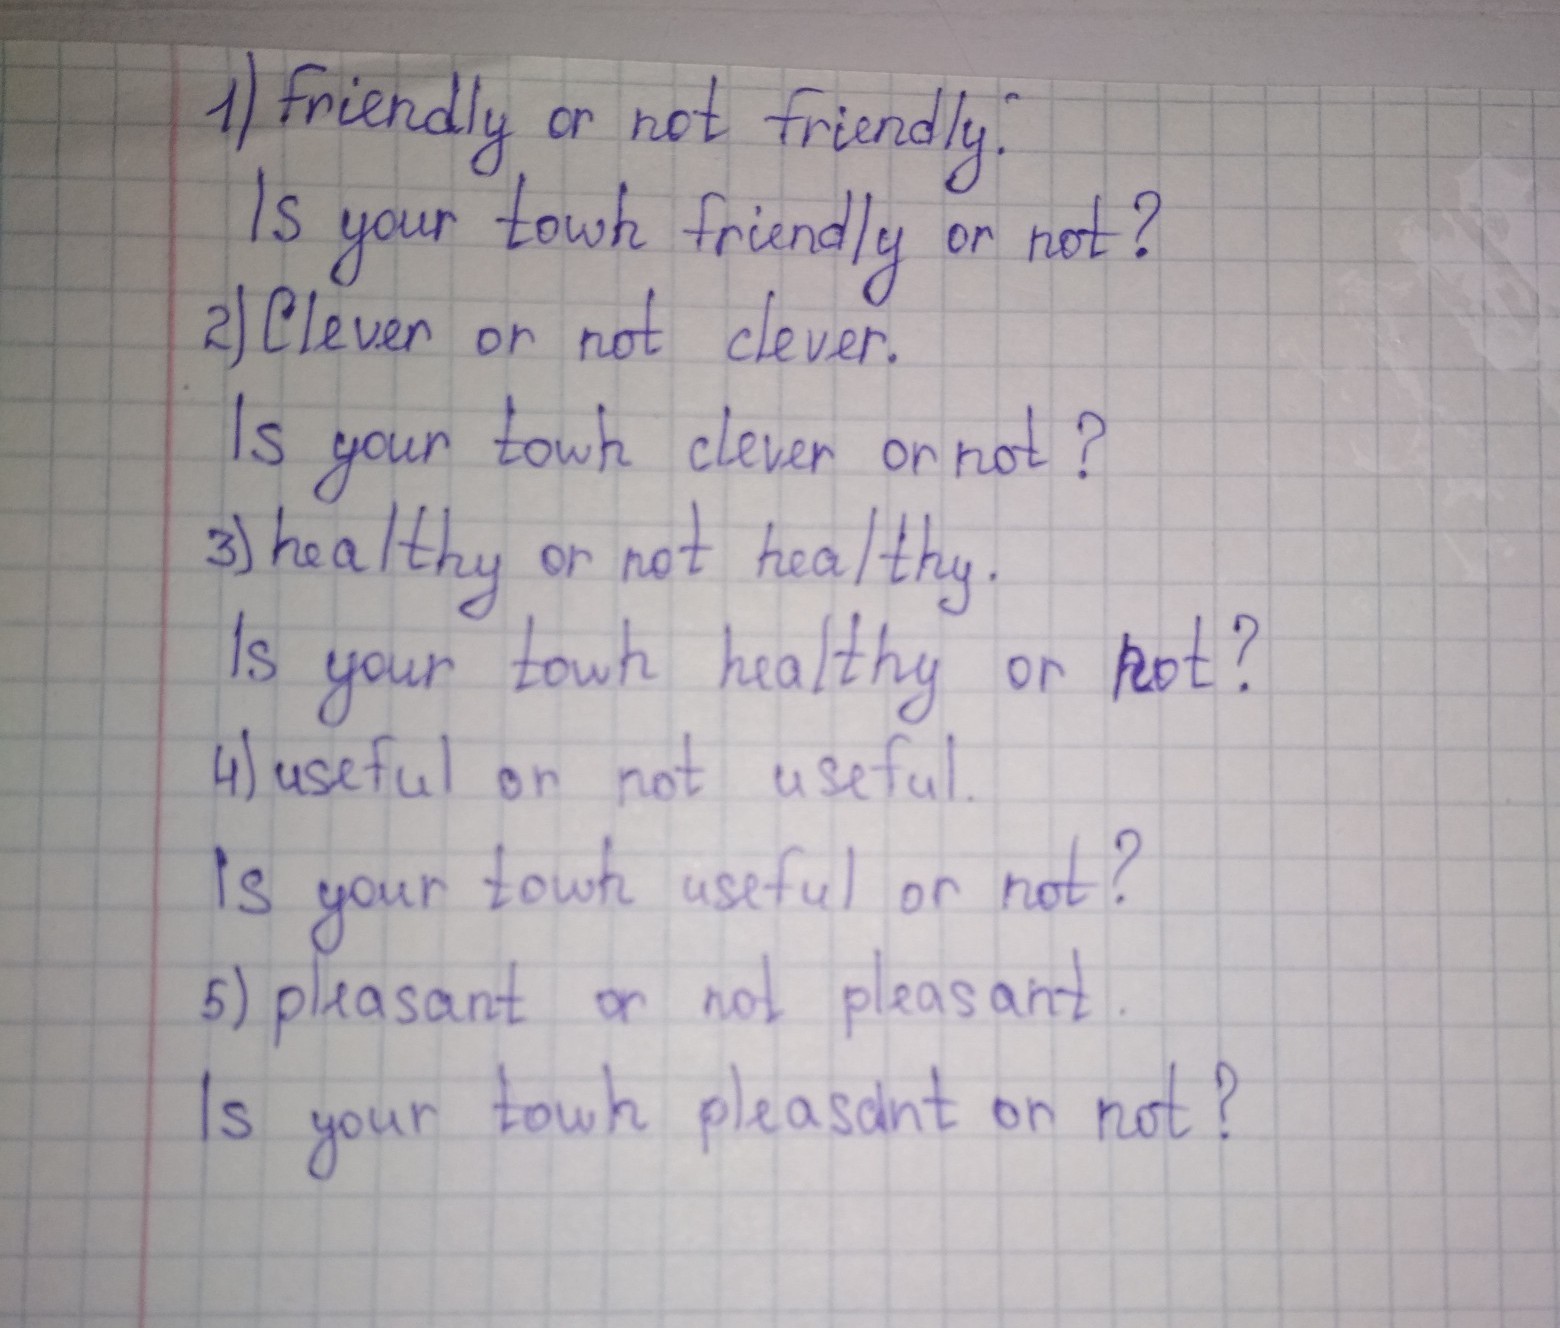 1) friendly or not friendly.
Is your town friendly or not?
2) Clever or not clever.
Is your town clever or not?
3) healthy or not healthy.
Is your town healthy or not?
4) useful or not useful.
Is your town useful or not?
5) pleasant or not pleasant.
Is your town pleasant or not?